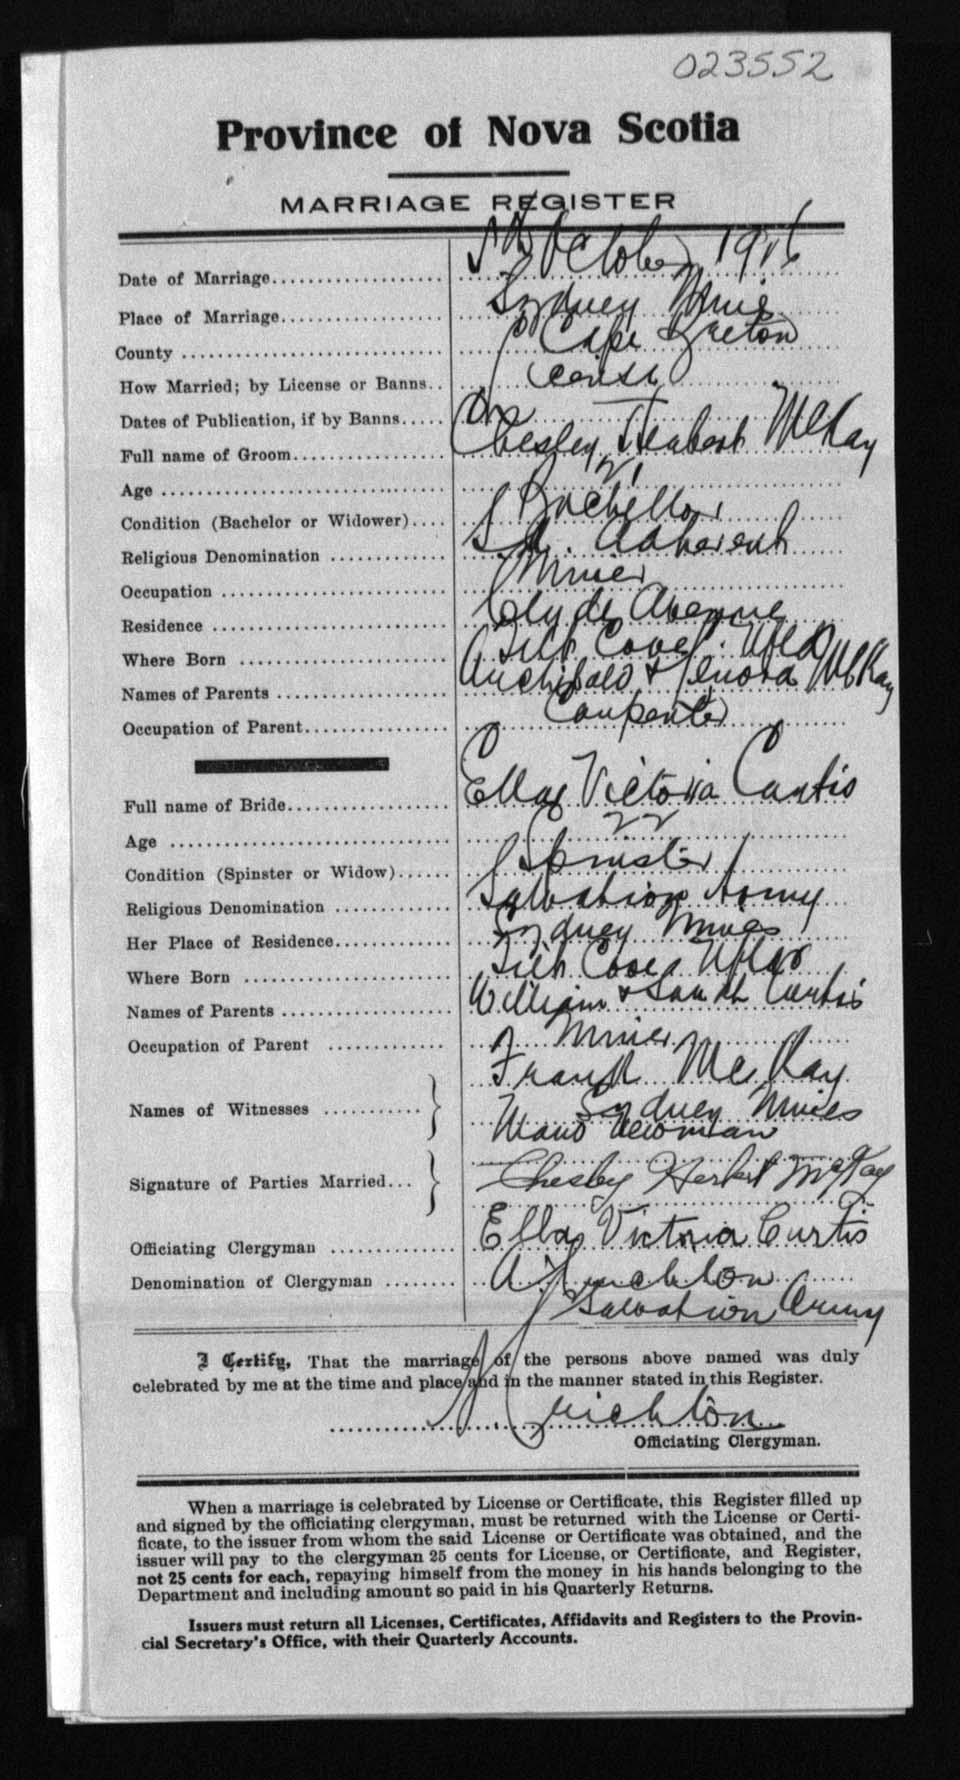 023552
Province of Nova Scotia
MARRIAGE REGISTER
Date of Marriage 5th October 1916
Place of Marriage Sydney Mines
County Cape Breton
How Married; by License or Banns
Dates of Publication, if by Banns
Full name of Groom Chesley Herbert McKay
Age 21
Condition (Bachelor or Widower) Bachellor
Religious Denomination S.A. Adherent
Occupation Miner
Residence Clyde Avenue
Where Born Tilt Cove Nfld
Names of Parents Archibald & Lenora McKay
Occupation of Parent Carpenter
Full name of Bride Ella Victoria Curtis
Age 22
Condition (Spinster or Widow) Spinster
Religious Denomination Salvation Army
Her Place of Residence Sydney Mines
Where Born Tilt Cove Nfld
Names of Parents William & Sarah Curtis
Occupation of Parent Miner
Frank McKay
Names of Witnesses } Sydney Mines
Newman
Signature of Parties Married } Chesley Herbert McKay
Ella Victoria Curtis
Officiating Clergyman
Denomination of Clergyman Salvation Army
I Certify, That the marriage of the persons above named was duly
celebrated by me at the time and place and in the manner stated in this Register.
Officiating Clergyman.
When a marriage is celebrated by License or Certificate, this Register filled up
and signed by the officiating clergyman, must be returned with the License or Certi-
ficate, to the issuer from whom the said License or Certificate was obtained, and the
issuer will pay to the clergyman 25 cents for License, or Certificate, and Register,
not 25 cents for each, repaying himself from the money in his hands belonging to the
Department and including amount so paid in his Quarterly Returns.
Issuers must return all Licenses, Certificates, Affidavits and Registers to the Provin-
cial Secretary's Office, with their Quarterly Accounts.